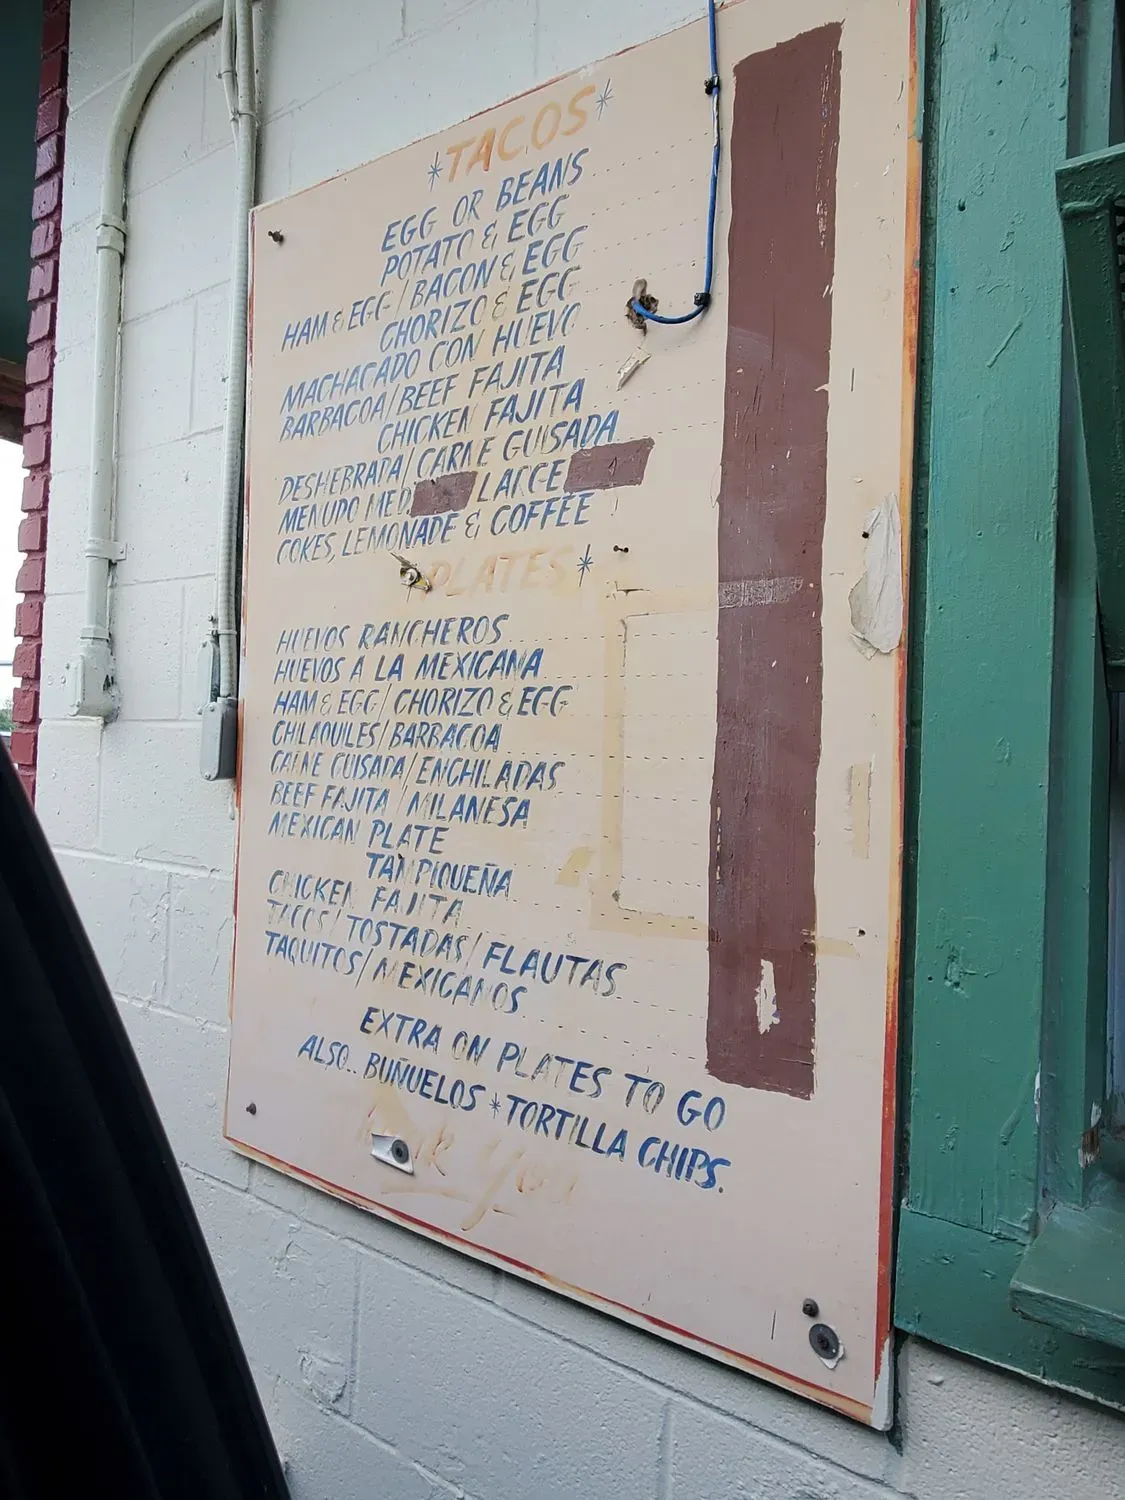 *TACOS*
EGG OR BEANS
POTATO & EGG
HAM & EGG / BACON & EGG
CHORIZO & EGG
MACHACADO CON HUEVO
BARBACOA / BEEF FAJITA
CHICKEN FAJITA
DESHEBRADA / CARNE GUISADA
MENUDO MED. LARGE
COKES, LEMONADE & COFFEE
PLATES*
HUEVOS RANCHEROS
HUEVOS A LA MEXICANA
HAM & EGG / CHORIZO & EGG
CHILAQUILES / BARBACOA
CARNE GUISADA / ENCHILADAS
BEEF FAJITA / MILANESA
MEXICAN PLATE
TAMPIQUEÑA
CHICKEN FAJITA
TACOS / TOSTADAS / FLAUTAS
TAQUITOS / MEXICANOS
EXTRA ON PLATES TO GO
ALSO.. BUÑUELOS * TORTILLA CHIPS.
Thank You